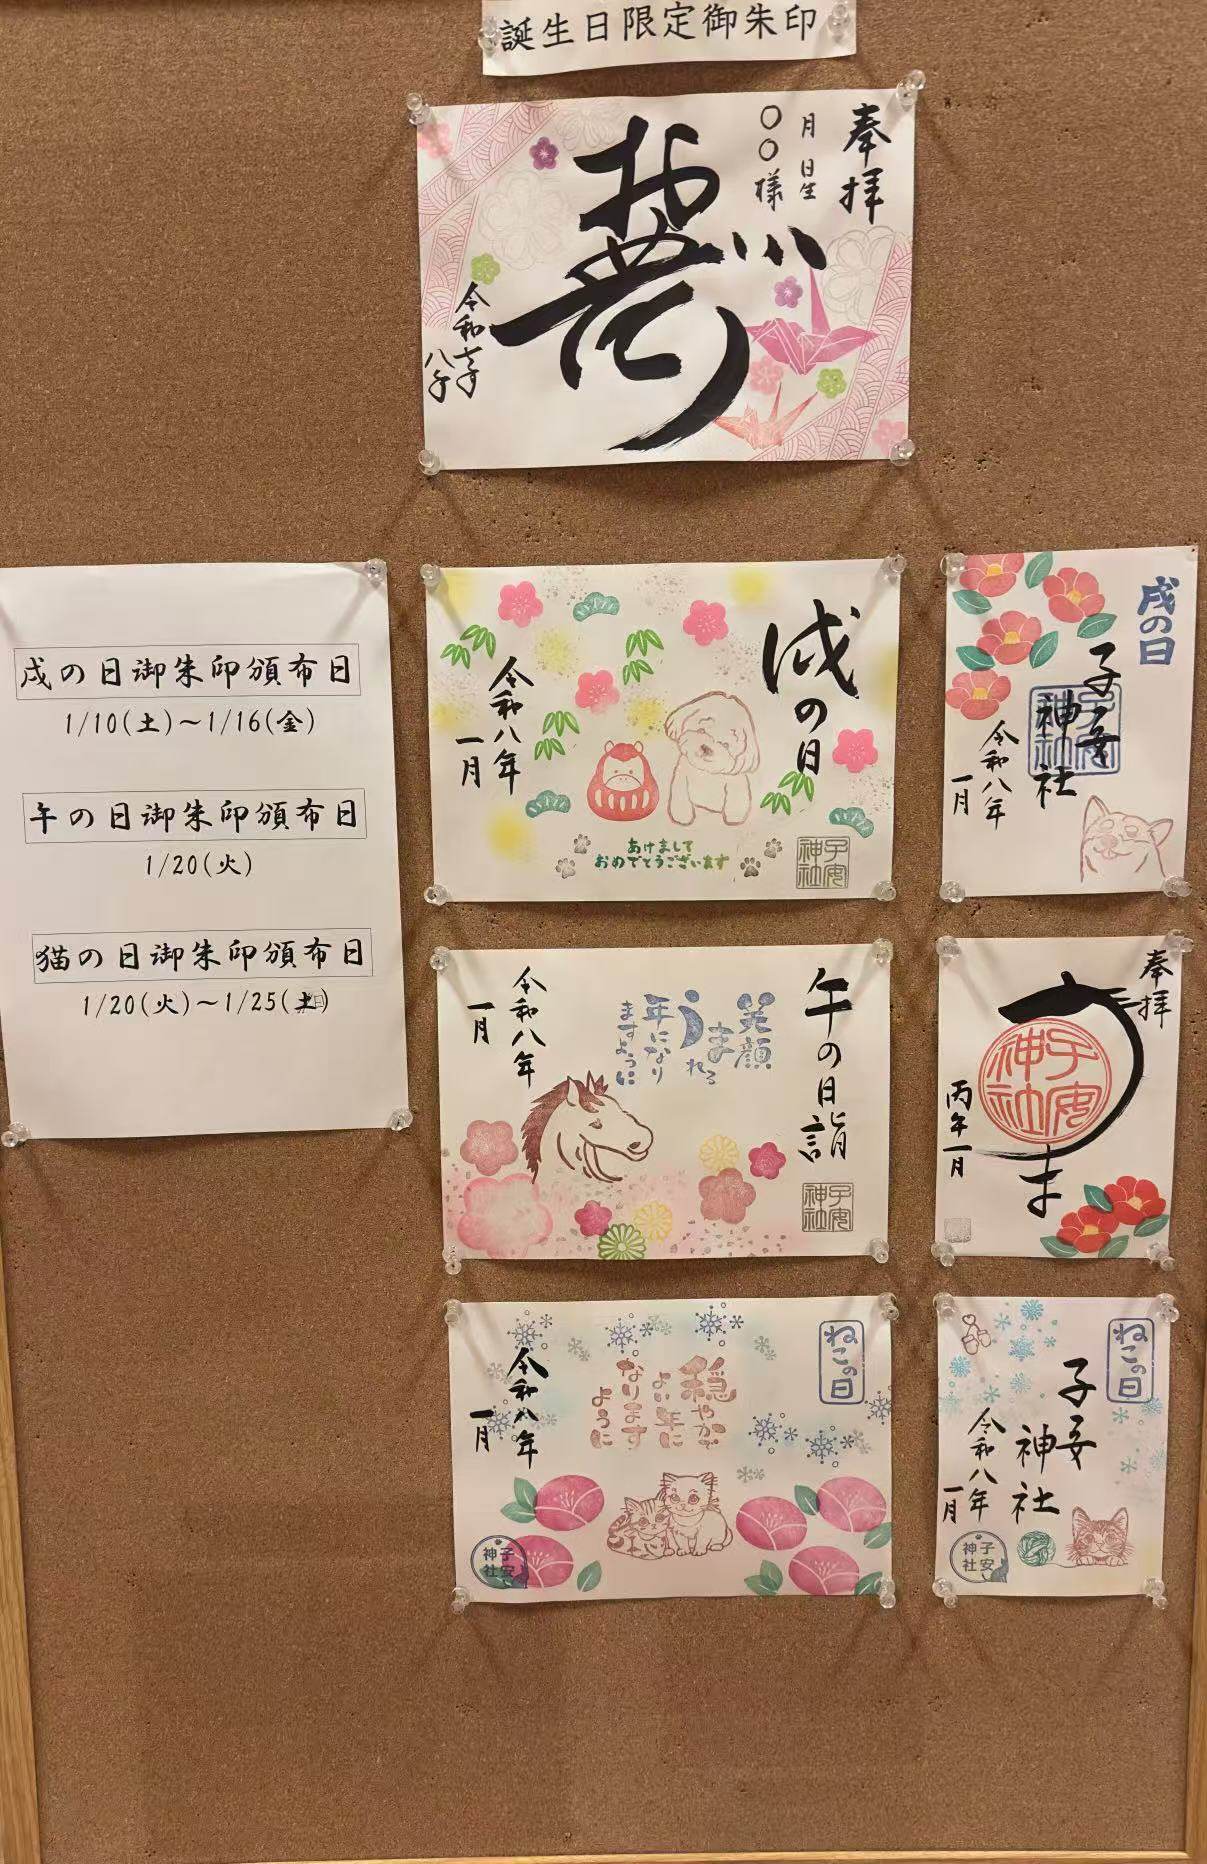 誕生日限定御朱印
奉拝
月 日生
〇〇様
令和
戌の日御朱印頒布日
1/10(土)～1/16(金)
午の日御朱印頒布日
1/20(火)
猫の日御朱印頒布日
1/20(火)～1/25(日)
戌の日
令和八年
一月
あけまして
おめでとうございます
子安
神社
戌の日
子安
神社
令和八年
一月
子安
神社
午の日詣
笑顔
うまれる
年になり
ますように
令和八年
一月
子安
神社
奉拝
うま
子安
神社
丙午一月
ねこの日
穏やかな
よい年に
なります
ように
令和八年
一月
子安
神社
ねこの日
子安
神社
令和八年
一月
子安
神社